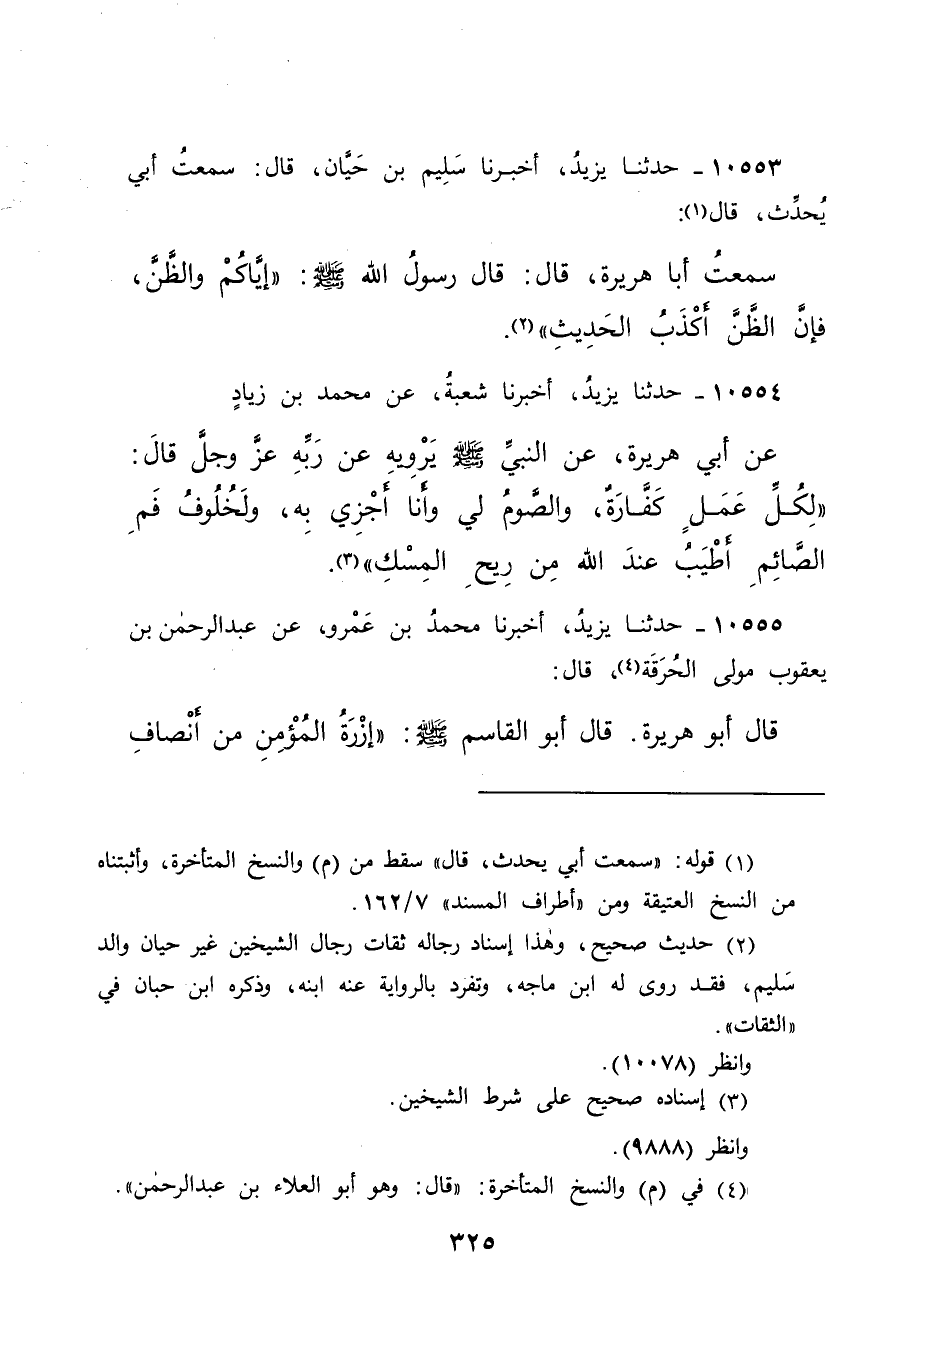 ١٠٥٥٣ ـ حدثنا يزيدُ، أخبرنا سَلِيم بن حَيَّان، قال: سمعتُ أبي
يُحدِّث، قال(١):
سمعتُ أبا هريرة، قال: قال رسولُ الله ﷺ: «إيَّاكُمْ والظَّنَّ،
فإنَّ الظَّنَّ أَكْذَبُ الحَدِيثِ»(٢).
١٠٥٥٤ ـ حدثنا يزيدُ، أخبرنا شعبةُ، عن محمد بن زيادٍ
عن أبي هريرة، عن النبيِّ ﷺ يَرْوِيهِ عن رَبِّهِ عزَّ وجلَّ قالَ:
«لِكُلِّ عَمَلٍ كَفَّارَةٌ، والصَّومُ لي وأَنا أَجْزِي بِه، ولَخُلُوفُ فَمِ
الصَّائِمِ أَطْيَبُ عندَ الله مِن رِيحِ المِسْكِ»(٣).
١٠٥٥٥ ـ حدثنا يزيدُ، أخبرنا محمدُ بن عَمْرو، عن عبدالرحمٰن بن
يعقوب مولى الحُرَقَة(٤)، قال:
قال أبو هريرة. قال أبو القاسم ﷺ: «إزْرَةُ المُؤْمِنِ من أَنْصافِ
(١) قوله: «سمعت أبي يحدث، قال» سقط من (م) والنسخ المتأخرة، وأثبتناه
من النسخ العتيقة ومن «أطراف المسند» ١٦٢/٧.
(٢) حديث صحيح، وهٰذا إسناد رجاله ثقات رجال الشيخين غير حيان والد
سَليم، فقد روى له ابن ماجه، وتفرد بالرواية عنه ابنه، وذكره ابن حبان في
«الثقات».
وانظر (١٠٠٧٨).
(٣) إسناده صحيح على شرط الشيخين.
وانظر (٩٨٨٨).
(٤) في (م) والنسخ المتأخرة: «قال: وهو أبو العلاء بن عبدالرحمٰن».
٣٢٥